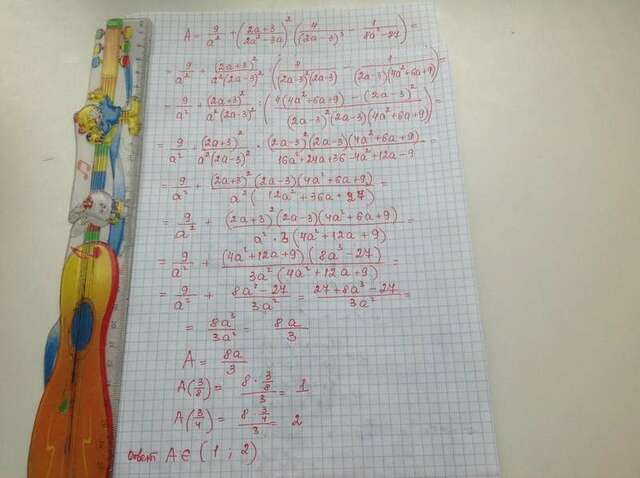 A = 9/a² + ((2a+3)/(2a²-3a))² : (4/(2a-3)³ - 1/(8a³-27)) =
= 9/a² + (2a+3)²/(a²(2a-3)²) : (4/((2a-3)²(2a-3)) - 1/((2a-3)(4a²+6a+9))) =
= 9/a² + (2a+3)²/(a²(2a-3)²) : ((4(4a²+6a+9) - (2a-3)²)/((2a-3)²(2a-3)(4a²+6a+9))) =
= 9/a² + (2a+3)²/(a²(2a-3)²) · ((2a-3)²(2a-3)(4a²+6a+9))/(16a²+24a+36-4a²+12a-9) =
= 9/a² + ((2a+3)²(2a-3)(4a²+6a+9))/(a²(12a²+36a+27)) =
= 9/a² + ((2a+3)²(2a-3)(4a²+6a+9))/(a²·3(4a²+12a+9)) =
= 9/a² + ((4a²+12a+9)(8a³-27))/(3a²(4a²+12a+9)) =
= 9/a² + (8a³-27)/(3a²) = (27+8a³-27)/(3a²) =
= 8a³/(3a²) = 8a/3
A = 8a/3
A(3/8) = (8·3/8)/3 = 1
A(3/4) = (8·3/4)/3 = 2
ответ A ∈ (1 ; 2)